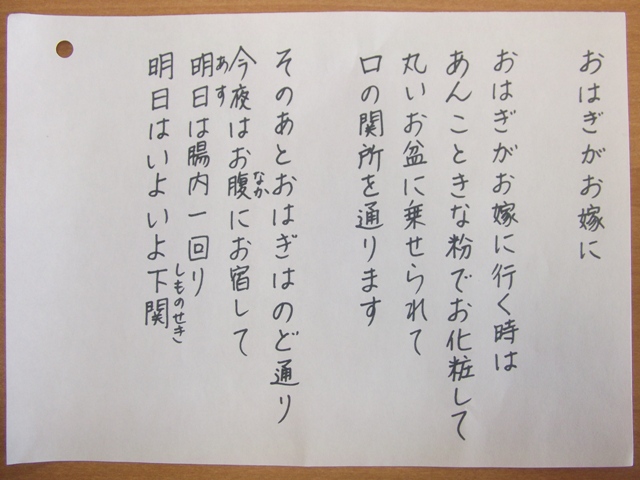 おはぎがお嫁に
おはぎがお嫁に行く時は
あんこときな粉でお化粧して
丸いお盆に乗せられて
口の関所を通ります
そのあとおはぎはのど通り
今夜はお腹にお宿して
なか
明日は腸内一回り
あす
明日はいよいよ下関
しものせき